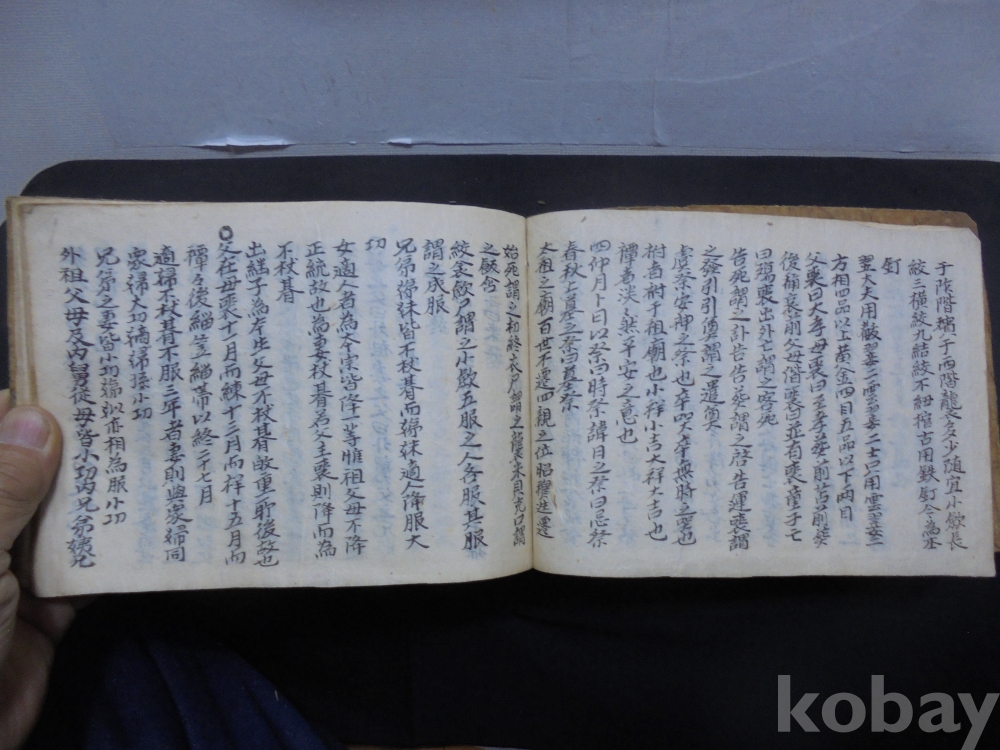 于阼階殯于西階襲多少随宜小歛長
絞三橫絞九結絞不紐棺古用䥫釘今為
釘
翣大夫用黻翣二雲翣二士只用雲翣二
方相四品以上黃金四目五品以下两目
父喪曰大孝母喪曰至孝葬前苫前葬
後 喪前父母偕喪並有喪童子七
曰 喪出外亡謂之客死
告死謂之訃告告葬謂之啓告運喪謂
之發引引奠謂之遣奠
虞祭安神之祭也卒哭大卒無時之哭也
祔者祔于祖廟也小祥小吉大祥大吉也
禫者淡淡然平安之意也
四仲月卜日以祭曰時祭諱日之祭曰忌祭
春秋上墓之祭曰墓祭
太祖之廟百世不遷四親之位昭穆迭遷
始死謂之初終衣尸謂之襲米貝 口謂
之飯含
絞金 謂之小歛五服之人各服其服
謂之成服
兄弟 皆不杖朞而 適人降服大
功
女適人者為 宗皆降一等惟祖父母不降
正統故也為妻杖朞若父主喪則降而為
不杖朞
出繼子為 父母不杖朞 重 後故也
父在母喪十一月而練十三月而祥十五月而
禫 後緇笠緇帶以終二十七月
適婦不杖朞不服三年者妻則與衆婦同
衆婦大功適孫婦小功
兄弟之妻皆小功 亦相為服小功
外祖父母及内舅從母皆小功内兄弟姨兄
kobay